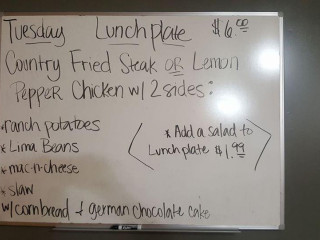 Tuesday Lunch plate $6.00
Country Fried Steak OR Lemon
Pepper Chicken w/ 2 sides:
*ranch potatoes
* Lima Beans
* mac-n-cheese
* slaw
w/ cornbread + german chocolate cake
* Add a salad to
Lunch plate $1.99